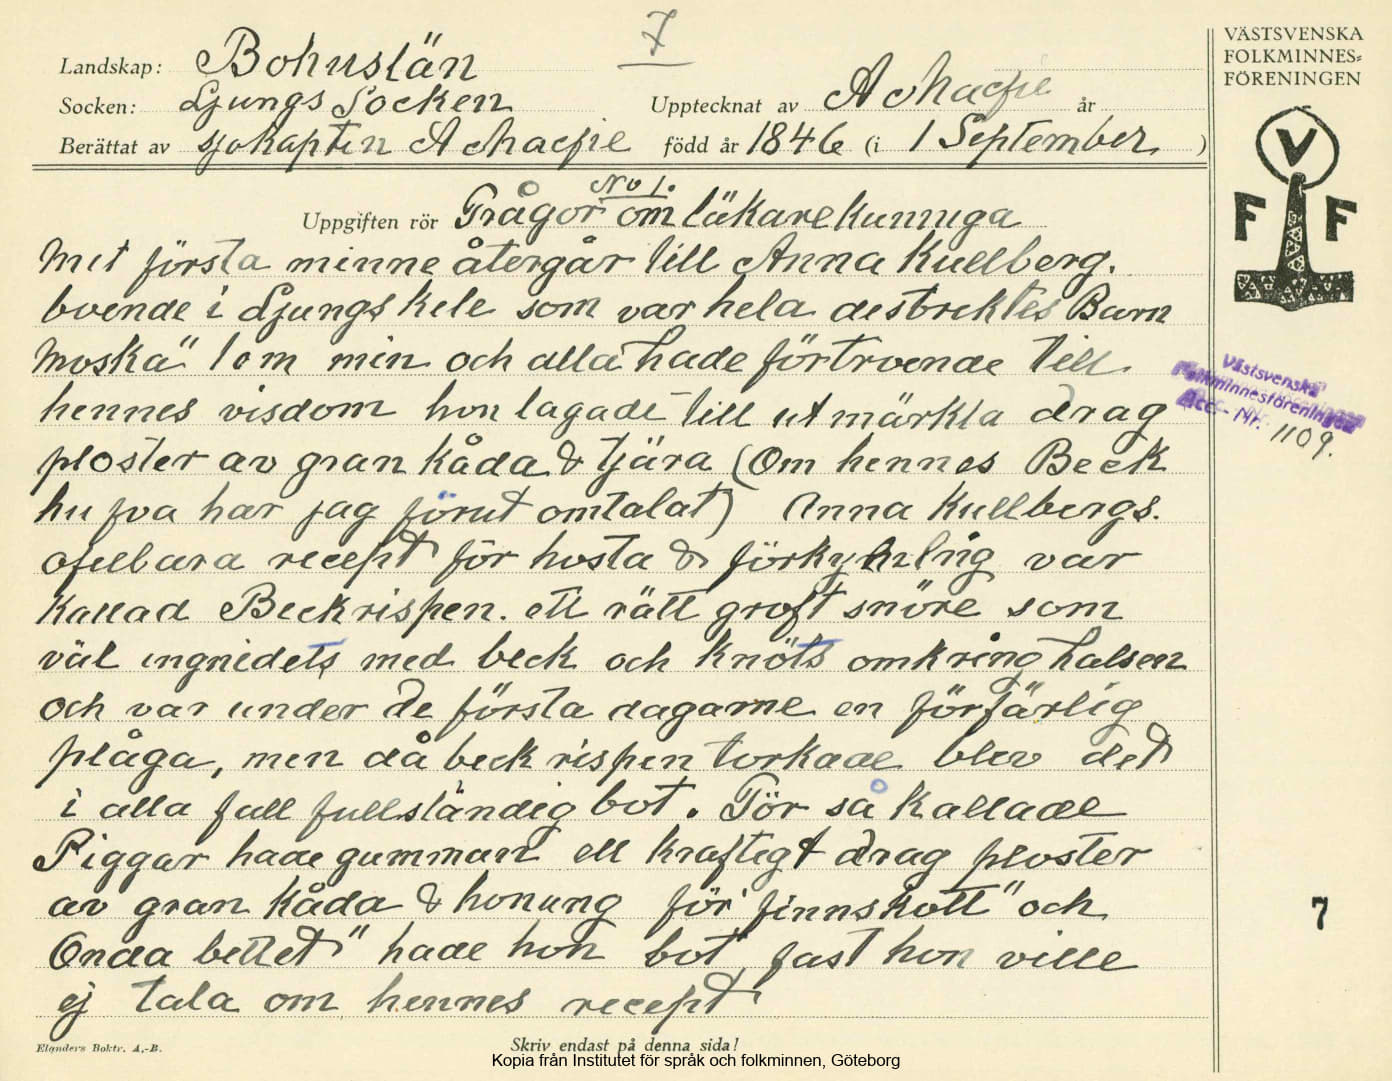 7
VÄSTSVENSKA
FOLKMINNES-
FÖRENINGEN
Landskap: Bohuslän
Socken: Ljungs Socken
Upptecknat av A Macfie år
Berättat av sjökapten A Macfie född år 1846 (i 1 September )
No 1.
Uppgiften rör Frågor om läkarekunniga
Mit första minne återgår till Anna Kullberg.
boende i Ljungskele som var hela destriktes Barn
Moska" som min och alla hade förtroende till
hennes visdom hon lagade till utmärkta drag
ploster av gran kåda & tjära (Om hennes Beck
hufva har jag förut omtalat) Anna Kullbergs.
ofelbara recept för hosta & förkylnig var
kallad Beckrispen. ett rätt groft snöre som
väl ingniedets med beck och knöts omkring halsen
och var under de första dagarne en förfärlig
plåga, men då beckrispen torkade blev det
i alla fall fullständig bot. För så kallade
Piggar hade gumman ett kraftigt drag ploster
av gran kåda & honung för finnskott" och
Onda bettet" hade hon bot fast hon ville
ej tala om hennes recept
Västsvenska
Folkminnesföreningen
Acc.- Nr. 1109.
V
F F
7
Elanders Boktr. A.-B.
Skriv endast på denna sida!
Kopia från Institutet för språk och folkminnen, Göteborg